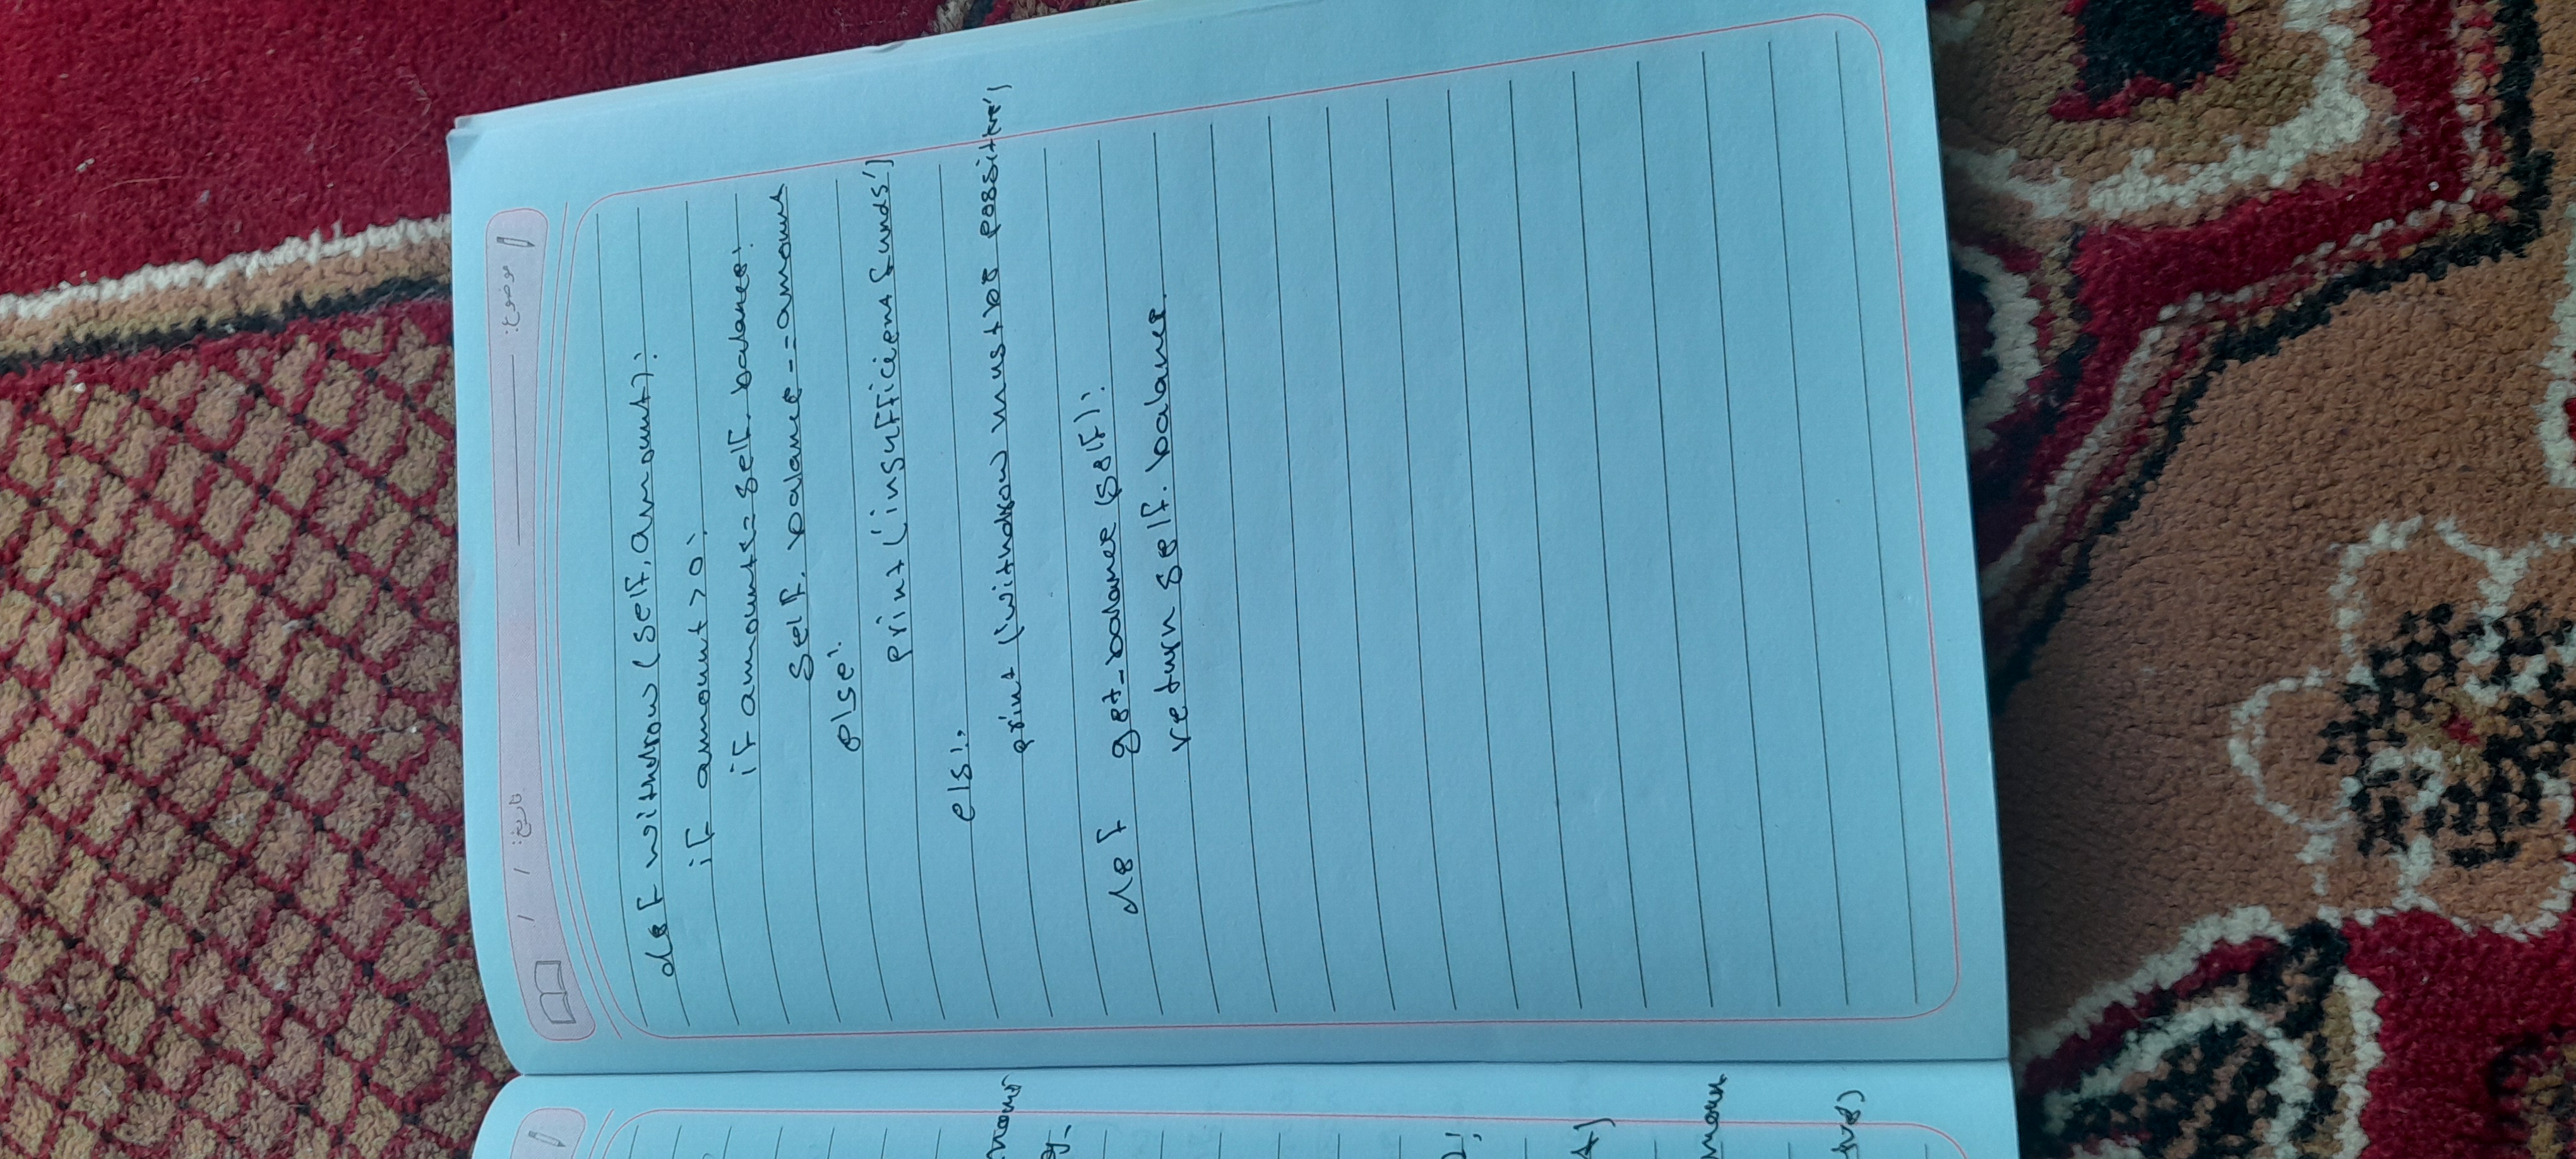 موضوع:
تاريخ: / /
def withdrow (self, amount):
if amount > 0:
if amount <= self. balance:
self. balance -= amount
else:
print ('insufficient funds')
els:.
print ('withdrow must be possitive')
def get_balance (self):
return self. balance.